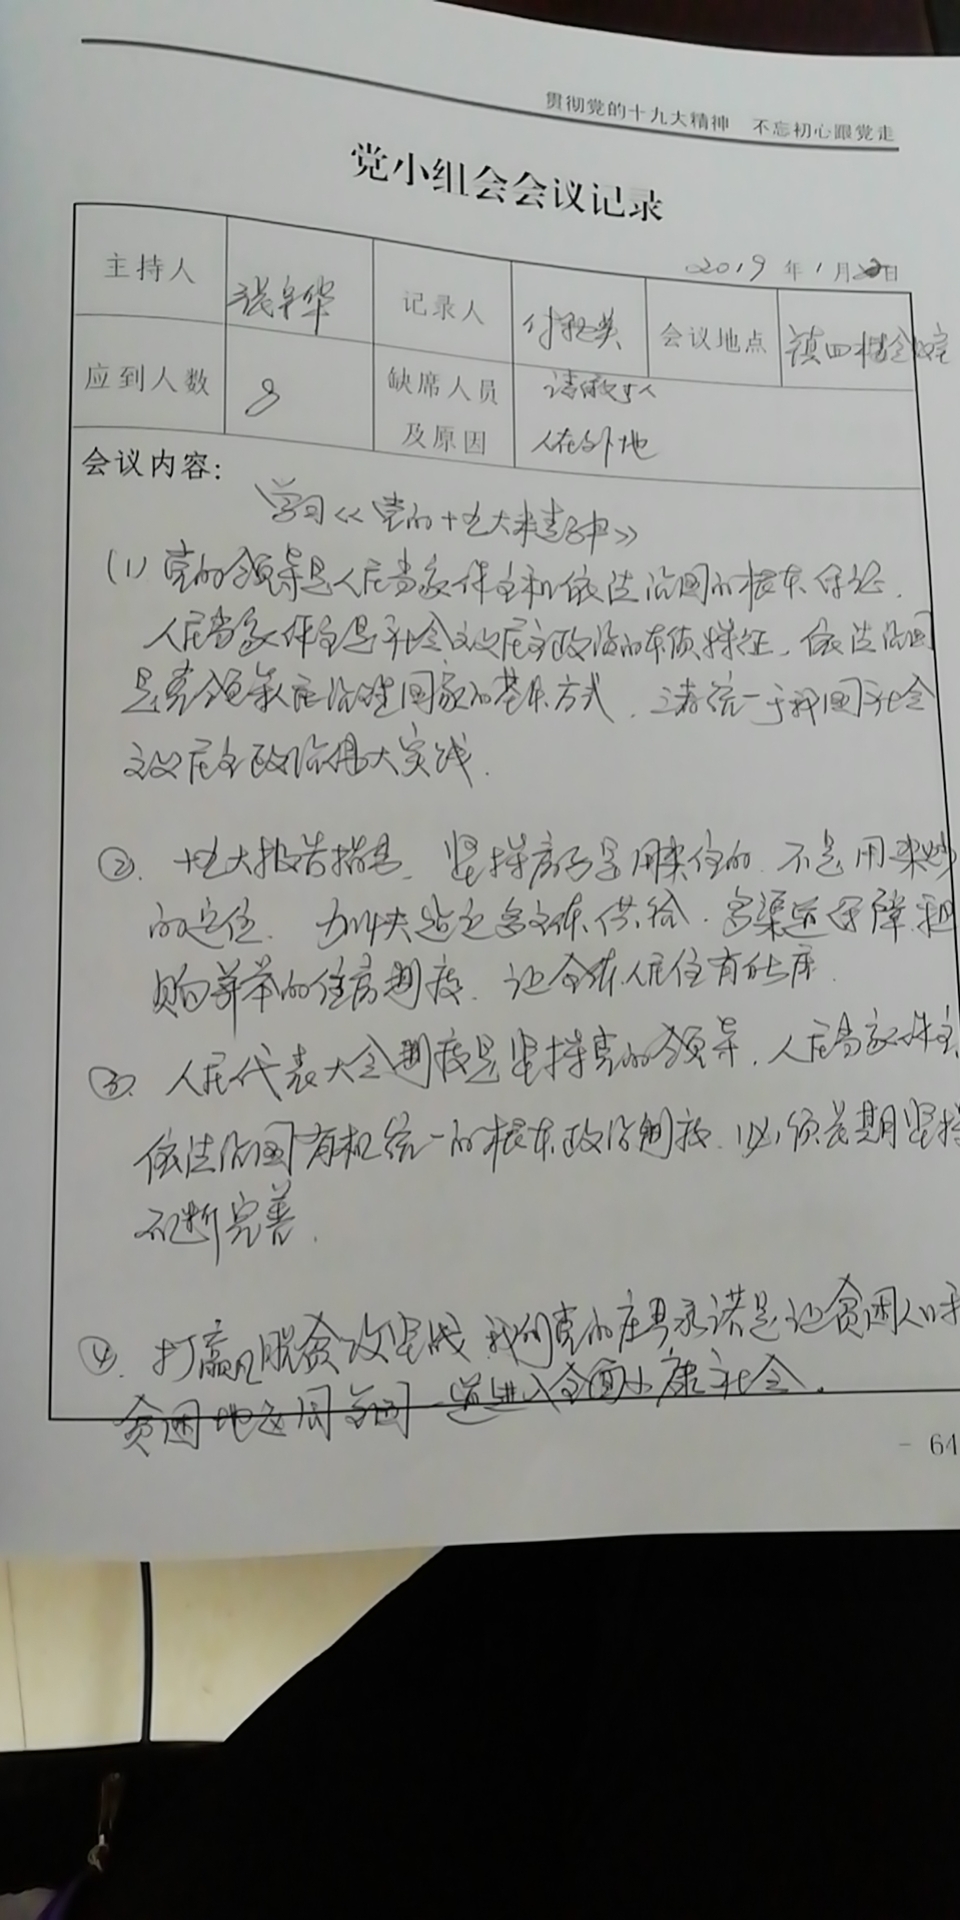 贯彻党的十九大精神 不忘初心跟党走
党小组会会议记录
2019年1月20日
主持人 记录人 会议地点 镇四楼会议室
应到人数 8 缺席人员及原因 人在外地
会议内容:
学习《党的十九大精神》
(1)党的领导是人民当家作主和依法治国的根本保证.
人民当家作主是社会主义民主政治的本质特征、依法治国
是党领导人民治理国家的基本方式.三者统一于我国社会
主义民主政治伟大实践.
②.十九大报告指出.坚持房子是用来住的.不是用来炒
的定位.加快建立多主体供给.多渠道保障.租
购并举的住房制度.让全体人民住有所居.
③.人民代表大会制度是坚持党的领导.人民当家作主.
依法治国有机统一的根本政治制度.必须长期坚持
不断完善.
④.打赢脱贫攻坚战.我们党的庄严承诺是让贫困人口和
贫困地区同全国一道进入全面小康社会.
- 64